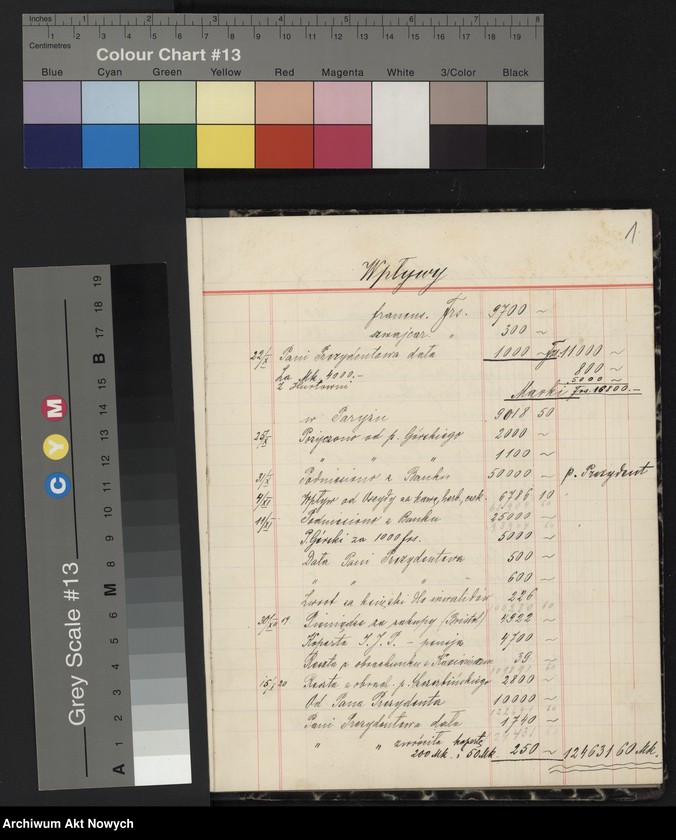 Inches 1 2 3 4 5 6 7 8
Centimetres 1 2 3 4 5 6 7 8 9 10 11 12 13 14 15 16 17 18 19
Colour Chart #13
Blue Cyan Green Yellow Red Magenta White 3/Color Black
Grey Scale #13
C Y M
A 1 2 3 4 5 6 M 8 9 10 11 12 13 14 15 B 17 18 19
1
Wpływy
francus. Frs. 9700 ~
szwajcar. " 300 ~
22/X Pani Prezydentowa dała 1000 ~ Frs. 11000 ~
Za Mk. 4000.– 800 ~
z Hurtowni 5000 ~
Marki Frs. 16800.–
w Paryżu 9018 50
25/X Pożyczono od p. Górskiego 2000 ~
" " " 1100 ~
31/X Podniesiono z Banku 50000 ~ p. Prezydent
4/XI Wpływ od za kawę, herb, 6786 10
11/XI Podniesiono z Banku 25000 ~
P. Górski za 1000 frs. 5000 ~
Dała Pani Prezydentowa 500 ~
" " " 600 ~
Zwrot za książki dla inwalidów 226
30/XII 19 za zakupy (Bristol) 4922 ~
Koperta I. J. P. – pensja 4700 ~
Reszta z obrachunku z 39 ~
15/I 20 Reszta z obrach. p. 2800 ~
Od Pana Prezydenta 10000 ~
Pani Prezydentowa dała 1740 ~
" " zwróciła koperty
200 Mk. i 50 Mk. 250 ~ 124631 60 Mk.
Archiwum Akt Nowych